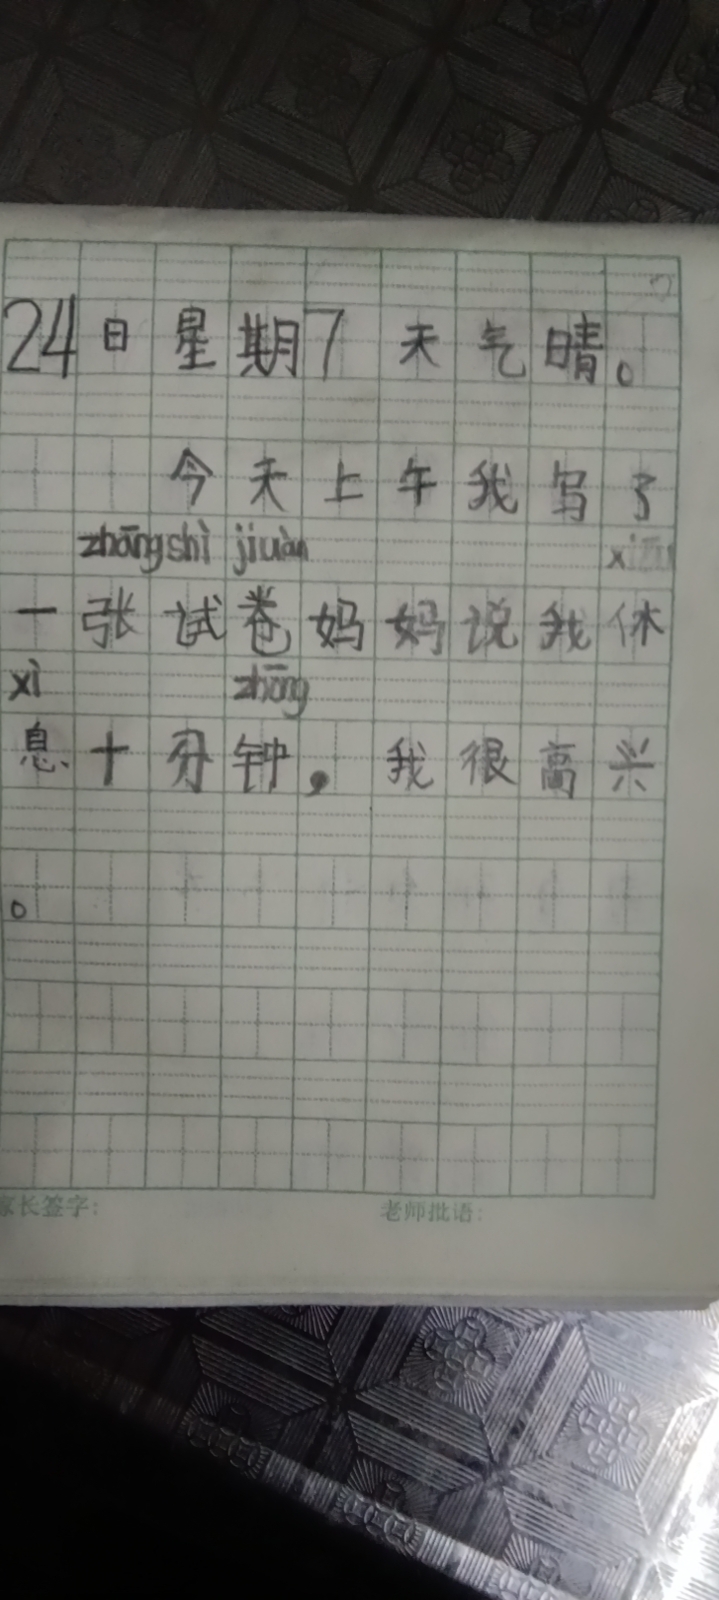 24日星期7 天气晴。
今天上午我写了
zhāng shì jiuàn xiū
一张试卷妈妈说我休
xì zhōng
息十分钟，我很高兴
。
家长签字： 老师批语：